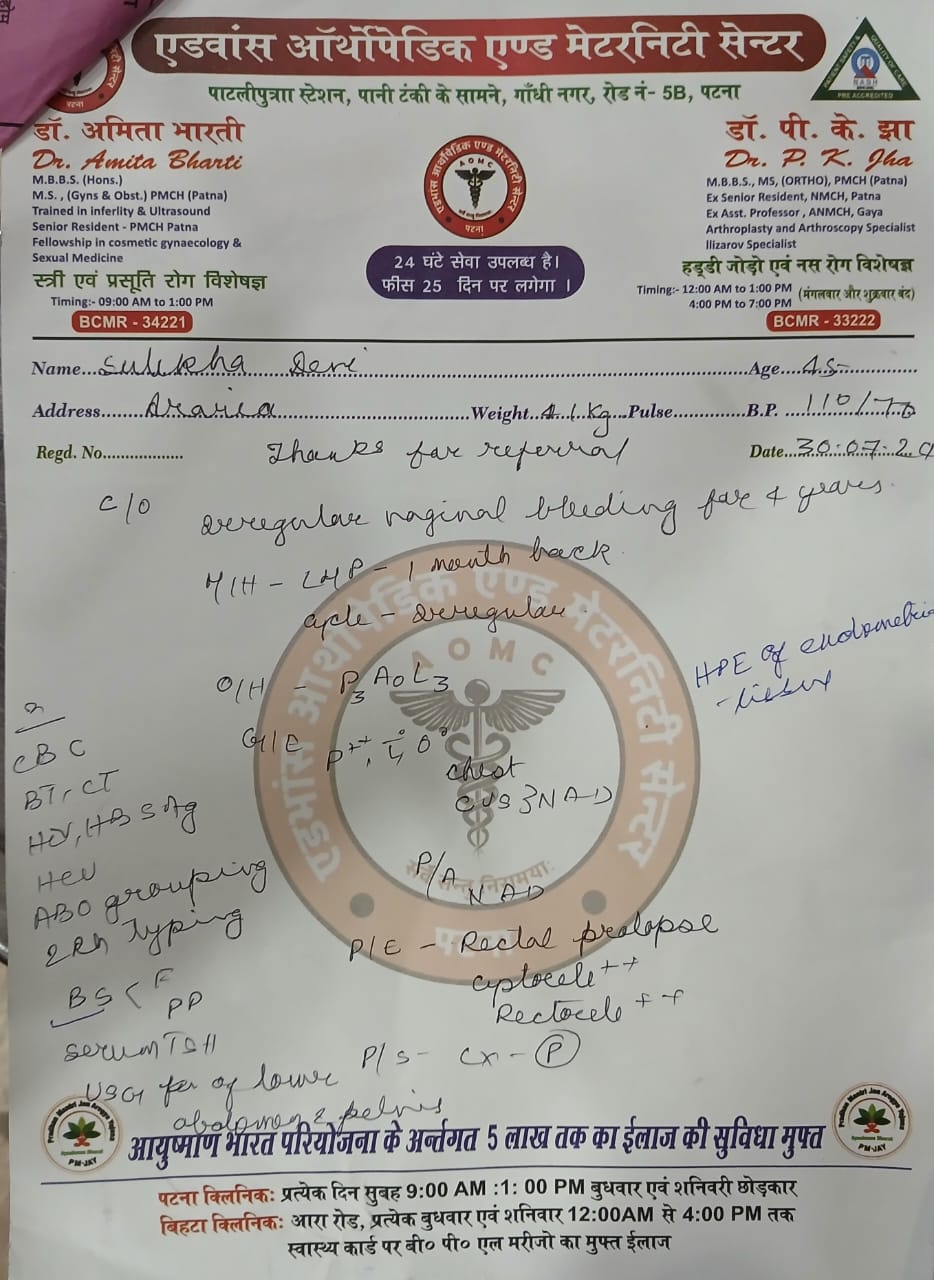 एडवांस ऑर्थोपेडिक एण्ड मेटरनिटी सेन्टर
पाटलीपुत्रा स्टेशन, पानी टंकी के सामने, गाँधी नगर, रोड नं- 5B, पटना
NABH
PRE ACCREDITED
डॉ. अमिता भारती
Dr. Amita Bharti
M.B.B.S. (Hons.)
M.S. , (Gyns & Obst.) PMCH (Patna)
Trained in inferlity & Ultrasound
Senior Resident - PMCH Patna
Fellowship in cosmetic gynaecology &
Sexual Medicine
स्त्री एवं प्रसूति रोग विशेषज्ञ
Timing:- 09:00 AM to 1:00 PM
BCMR - 34221
एडभांस आर्थोपेडिक एण्ड मेटरनिटी सेन्टर
AOMC
पटना
24 घंटे सेवा उपलब्ध है।
फीस 25 दिन पर लगेगा ।
डॉ. पी. के. झा
Dr. P. K. Jha
M.B.B.S., MS, (ORTHO), PMCH (Patna)
Ex Senior Resident, NMCH, Patna
Ex Asst. Professor , ANMCH, Gaya
Arthroplasty and Arthroscopy Specialist
Ilizarov Specialist
हड्डी जोड़ो एवं नस रोग विशेषज्ञ
Timing:- 12:00 AM to 1:00 PM
4:00 PM to 7:00 PM
(मंगलवार और शुक्रवार बंद)
BCMR - 33222
Name...Sulekha Devi Age...45
Address...Araria Weight 41 Kg Pulse... B.P. ...110/70
Regd. No... Thanks for referral Date...30.07.2
C/O Irregular vaginal bleeding for 4 years.
M/H - LMP - 1 month back
cycle - Irregular
O/H - P3 A0 L3
HPE of endometri
tissue
G/E P++,
chest
CVS } NAD
P/A NAD
P/E - Rectal prolapse
Cystocele ++
Rectocele ++
P/S - Cx - P
CBC
BT, CT
HIV, HBSAg
HCV
ABO grouping
& Rh typing
BS < F
PP
Serum TSH
USG of lower
abdomen & pelvis
एडभांस आर्थोपेडिक एण्ड मेटरनिटी सेन्टर
AOMC
सर्वे सन्तु निरामयाः
पटना
Pradhan Mantri Jan Arogya Yojana
PM-JAY
आयुष्माण भारत परियोजना के अर्न्तगत 5 लाख तक का ईलाज की सुविधा मुफ्त
Pradhan Mantri Jan Arogya Yojana
PM-JAY
पटना क्लिनिक: प्रत्येक दिन सुबह 9:00 AM :1: 00 PM बुधवार एवं शनिवरी छोड़कार
बिहटा क्लिनिक: आरा रोड, प्रत्येक बुधवार एवं शनिवार 12:00AM से 4:00 PM तक
स्वास्थ्य कार्ड पर बी० पी० एल मरीजो का मुफ्त ईलाज